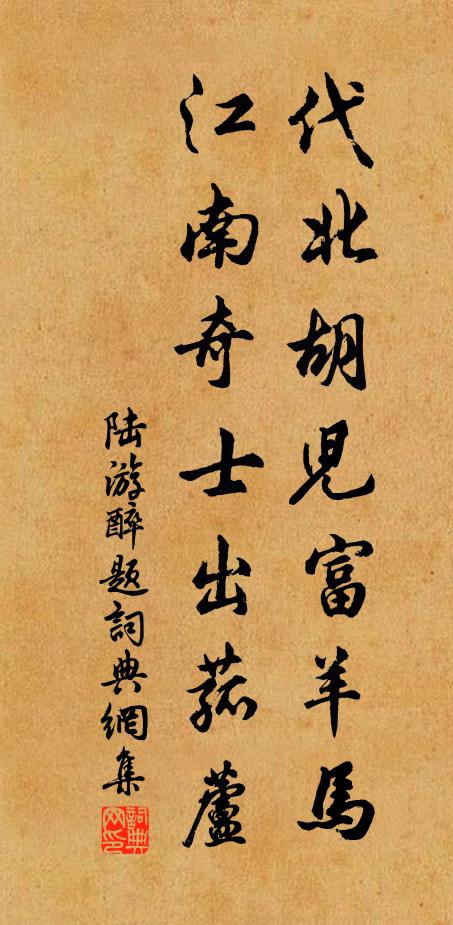 代北胡児富羊馬
江南奇士出菰蘆
陆游醉题詞典網集
詞典网印